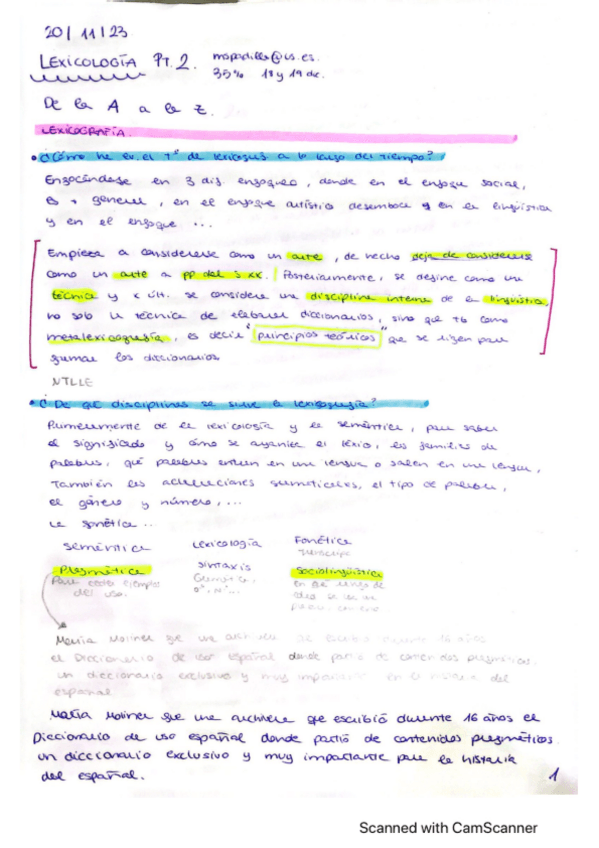 20/11/23
LEXICOLOGÍA PT. 2. mapadilla@us.es.
35% 18 y 19 dic.
De la A a la Z.
LEXICOGRAFÍA.
• ¿Cómo ha ev. el tº de lexicograf. a lo largo del tiempo?
Enfocándose en 3 dif. enfoques, donde en el enfoque social,
es + general, en el enfoque artístico desemboca y en la lingüística
y en el enfoque ...
Empieza a considerarse como un arte, de hecho deja de considerarse
como un arte a pp del s XX. Posteriormente, se define como una
técnica y x últ. se considera una disciplina interna de la lingüística,
no solo la técnica de elaborar diccionarios, sino que tb como
metalexicografía, es decir "principios teóricos" que se rigen para
formar los diccionarios
NTLLE
• ¿De qué disciplinas se sirve la lexicografía?
Primeramente de la lexicología y la semántica, para saber
el significado y cómo se organiza el léxico, las familias de
palabras, qué palabras entran en una lengua o salen en una lengua,
también las aclaraciones gramaticales, el tipo de palabra,
el género y número, ...
la fonética ..
semántica Lexicología Fonética
Transcrip.
Pragmática sintaxis sociolingüística
Para coger ejemplos del uso.
María Moliner fue una archivera que escribió durante 16 años
el Diccionario de uso español donde partió de contenidos pragmáticos.
un diccionario exclusivo y muy importante en la historia del
español
María Moliner fue una archivera que escribió durante 16 años el
Diccionario de uso español donde partió de contenidos pragmáticos
un diccionario exclusivo y muy importante para la historia
del español.
1
Scanned with CamScanner